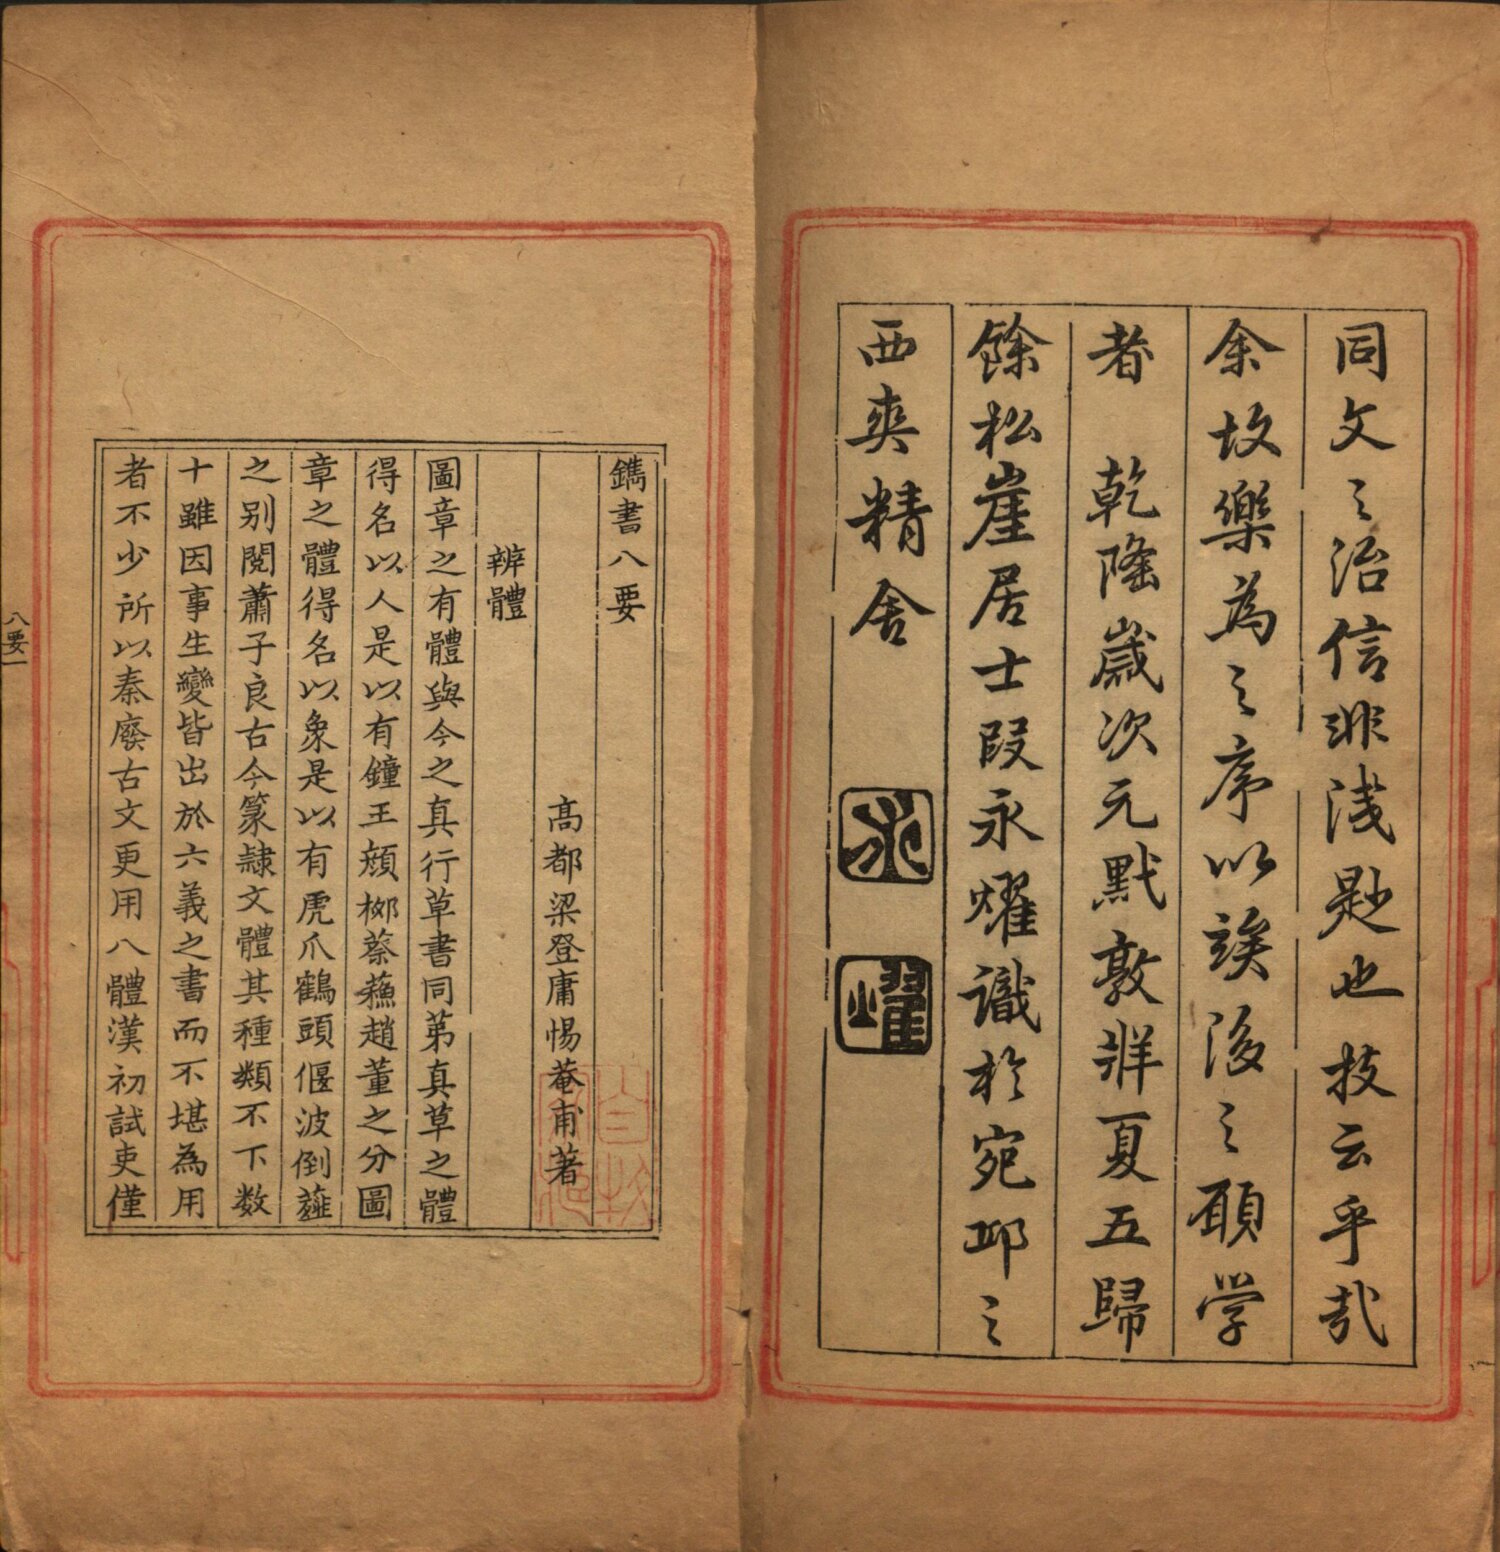 同文之治信非淺尠也技云乎哉
余故樂為之序以俟後之願学
者　乾隆歲次元黓敦牂夏五歸
餘松崖居士段永燿識於宛邱之
西爽精舍
永
燿
鐫書八要
高都梁登庸惕菴甫著
辨體
圖章之有體與今之真行草書同第真草之體
得名以人是以有鐘王顏桞蔡蘓趙董之分圖
章之體得名以象是以有虎爪鶴頭偃波倒薤
之别閱蕭子良古今篆隸文體其種類不下数
十雖因事生變皆出於六義之書而不堪為用
者不少所以秦廢古文更用八體漢初試吏僅
八要一